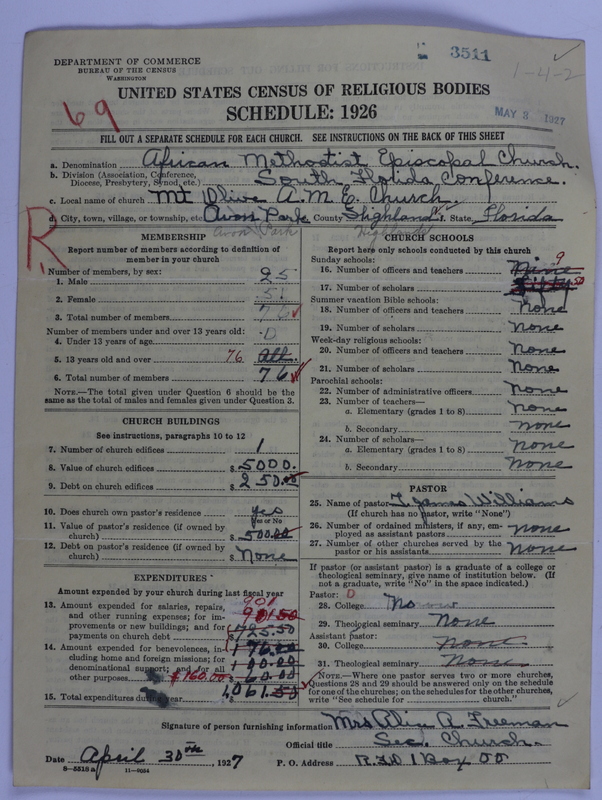 3511
1-4-2
DEPARTMENT OF COMMERCE
BUREAU OF THE CENSUS
WASHINGTON
UNITED STATES CENSUS OF RELIGIOUS BODIES
69
SCHEDULE: 1926
MAY 3 1927
FILL OUT A SEPARATE SCHEDULE FOR EACH CHURCH. SEE INSTRUCTIONS ON THE BACK OF THIS SHEET
a. Denomination African Methodist Episcopal Church.
b. Division (Association, Conference, Diocese, Presbytery, Synod, etc.) South Florida Conference.
c. Local name of church Mt Olive A.M.E. Church
d. City, town, village, or township, etc. Avon Park County Highland State Florida
Avon Park Highlands
R
MEMBERSHIP
Report number of members according to definition of member in your church
Number of members, by sex:
1. Male 25
2. Female 51
3. Total number of members 76
Number of members under and over 13 years old:
4. Under 13 years of age 0
5. 13 years old and over 76 all.
6. Total number of members 76
NOTE.—The total given under Question 6 should be the same as the total of males and females given under Question 3.
CHURCH BUILDINGS
See instructions, paragraphs 10 to 12
7. Number of church edifices 1
8. Value of church edifices $5000.
9. Debt on church edifices $250.00
10. Does church own pastor's residence yes
Yes or No
11. Value of pastor's residence (if owned by church) $500.00
12. Debt on pastor's residence (if owned by church) $None
EXPENDITURES
Amount expended by your church during last fiscal year
901
13. Amount expended for salaries, repairs, and other running expenses; for improvements or new buildings; and for payments on church debt 901.50
$725.50
14. Amount expended for benevolences, including home and foreign missions; for denominational support; and for all other purposes $160.00
176.00
100.00
60.00
15. Total expenditures during year 1,061.50
CHURCH SCHOOLS
Report here only schools conducted by this church
Sunday schools:
16. Number of officers and teachers Nine 9
17. Number of scholars Fifty 50
Summer vacation Bible schools:
18. Number of officers and teachers None
19. Number of scholars None
Week-day religious schools:
20. Number of officers and teachers None
21. Number of scholars None
Parochial schools:
22. Number of administrative officers None
23. Number of teachers—
a. Elementary (grades 1 to 8) None
b. Secondary None
24. Number of scholars—
a. Elementary (grades 1 to 8) None
b. Secondary None
PASTOR
25. Name of pastor Williams
(If church has no pastor, write "None")
26. Number of ordained ministers, if any, employed as assistant pastors None
27. Number of other churches served by the pastor or his assistants None
If pastor (or assistant pastor) is a graduate of a college or theological seminary, give name of institution below. (If not a graduate, write "No" in the space indicated.)
Pastor: 0
28. College
29. Theological seminary None
Assistant pastor:
30. College None
31. Theological seminary None
NOTE.—Where one pastor serves two or more churches, Questions 28 and 29 should be answered only on the schedule for one of the churches; on the schedules for the other churches, write "See schedule for church."
Signature of person furnishing information Mrs Aliza A. Freeman
Official title Sec. Church.
Date April 30th, 1927
P. O. Address R.F.D 1 Box 55
8—5518 a 11—9054